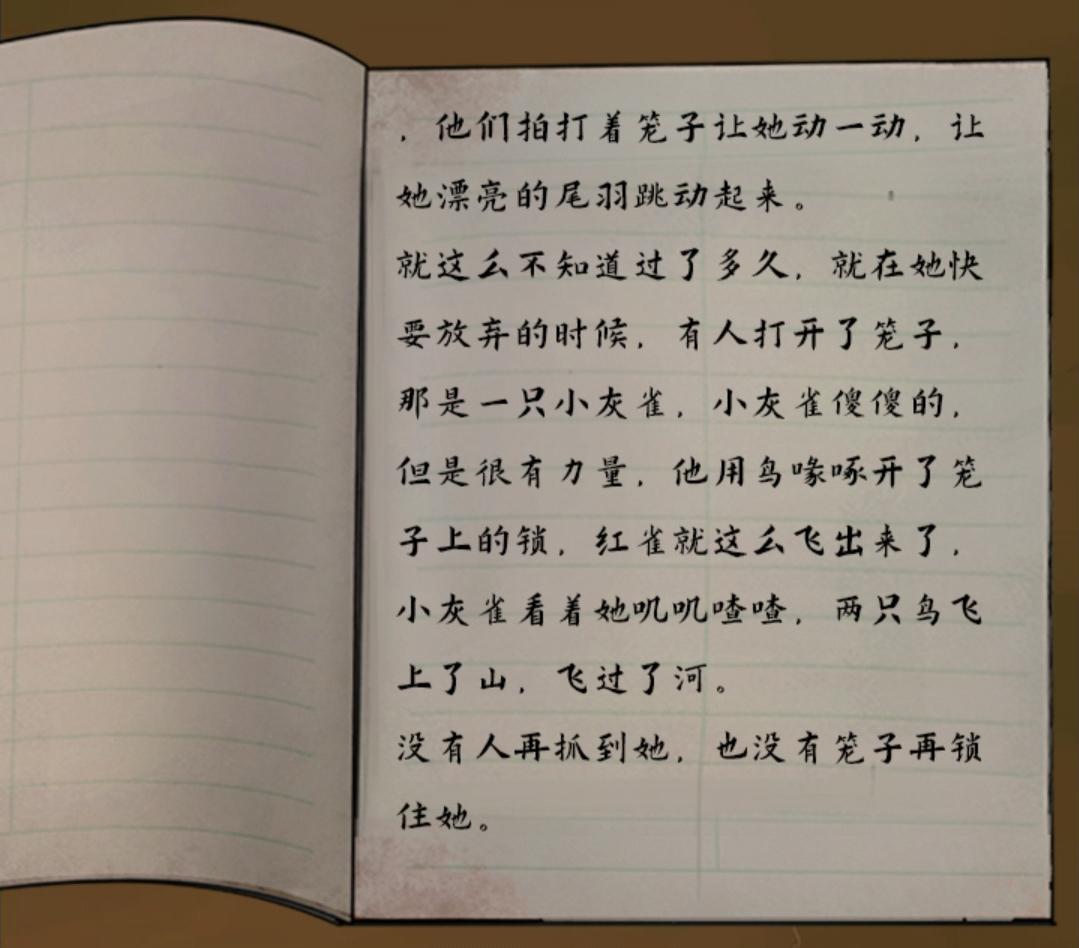 ，他们拍打着笼子让她动一动，让
她漂亮的尾羽跳动起来。
就这么不知道过了多久，就在她快
要放弃的时候，有人打开了笼子，
那是一只小灰雀，小灰雀傻傻的，
但是很有力量，他用鸟喙啄开了笼
子上的锁，红雀就这么飞出来了，
小灰雀看着她叽叽喳喳，两只鸟飞
上了山，飞过了河。
没有人再抓到她，也没有笼子再锁
住她。